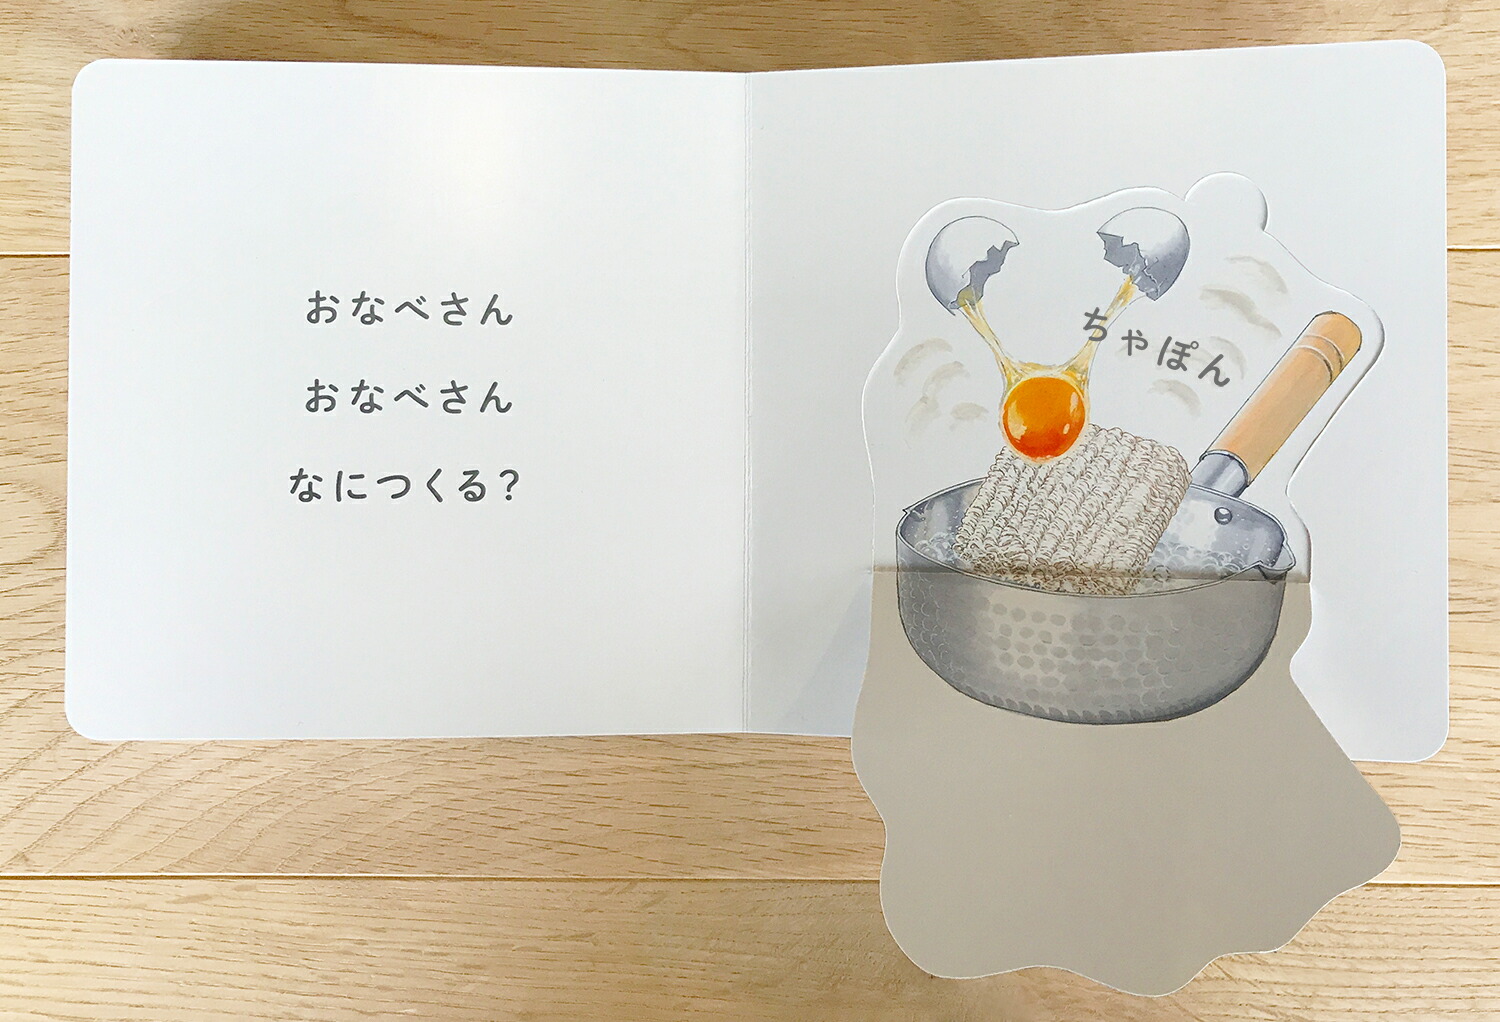 おなべさん
おなべさん
なにつくる?
ちゃぽん